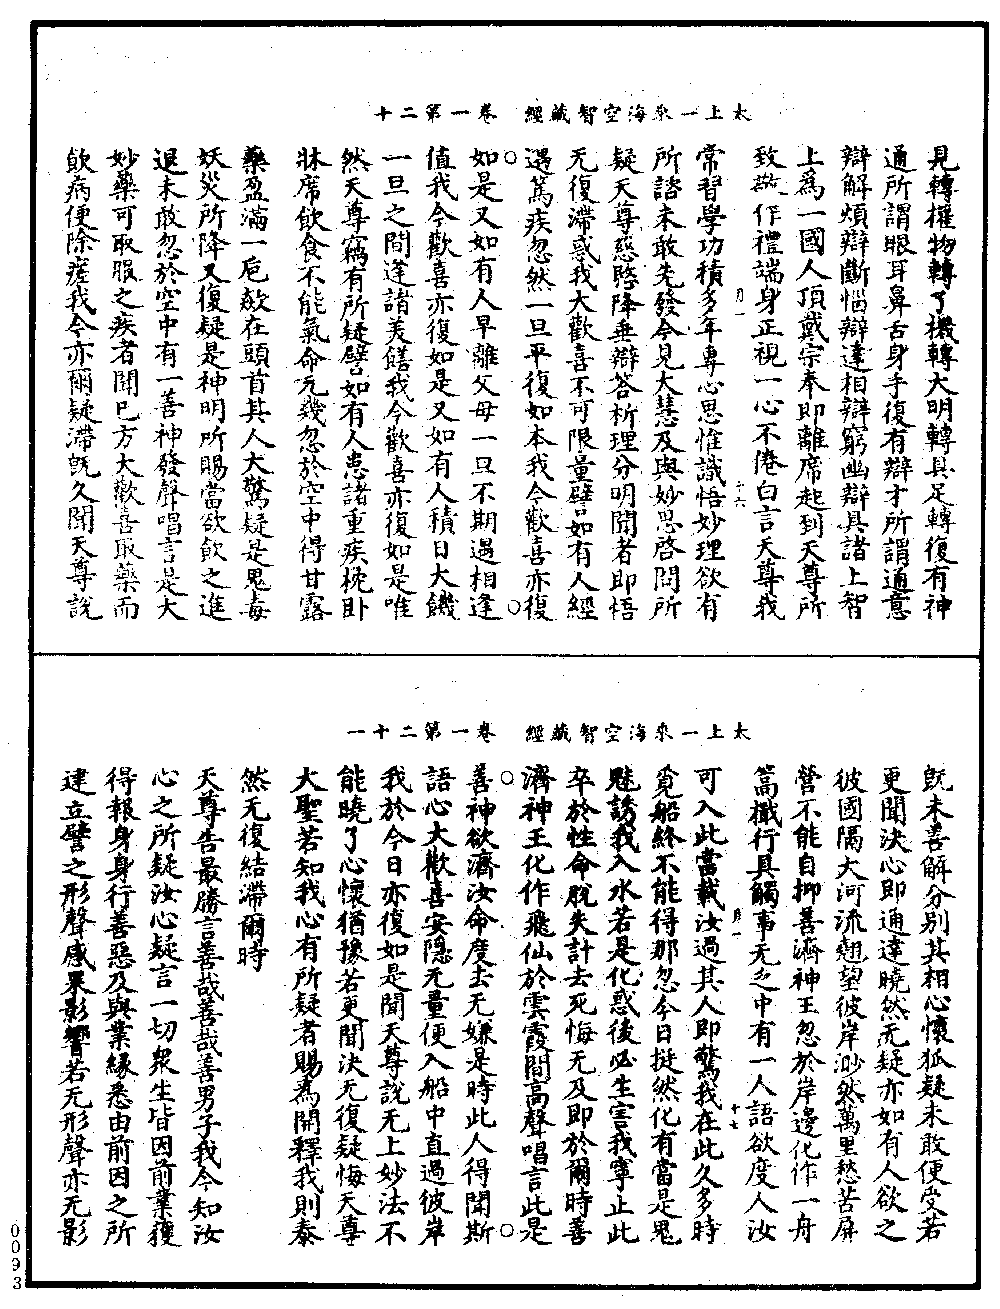 太上一乘海空智藏經　卷一第二十
見轉權物轉了機轉大明轉具足轉復有神
通所謂眼耳鼻舌身手復有辯才所謂通意
辯解煩辯斷惱辯達相辯窮幽辯具諸上智
上爲一國人頂戴宗奉即離席起到天尊所
致敬作禮端身正視一心不倦白言天尊我
月一
十六
常習學功積多年專心思惟識悟妙理欲有
所諮未敢先發今見大慧及與妙思啓問所
疑天尊慈愍降垂辯答析理分明聞者即悟
无復滯惑我大歡喜不可限量譬如有人經
遇篤疾忽然一旦平復如本我今歡喜亦復
如是又如有人早離父母一旦不期遇相逢
值我今歡喜亦復如是又如有人積日大饑
一旦之間逢諸美饍我今歡喜亦復如是唯
然天尊竊有所疑譬如有人患諸重疾枕卧
牀席飲食不能氣命无幾忽於空中得甘露
藥盈滿一卮欻在頭首其人大驚疑是鬼毒
妖災所降又復疑是神明所賜當欲飲之進
退未敢忽於空中有一善神發聲唱言是大
妙藥可取服之疾者聞已方大歡喜取藥而
飲病便除瘥我今亦爾疑滯旣久聞天尊說
太上一乘海空智藏經　卷一第二十一
旣未善解分別其相心懷狐疑未敢便受若
更聞決心即通達曉然无疑亦如有人欲之
彼國隔大河流翹望彼岸渺然萬里愁苦屏
營不能自抑善濟神王忽於岸邊化作一舟
篙檝行具觸事无乏中有一人語欲度人汝
月一
十七
可入此當載汝過其人即驚我在此久多時
覓船終不能得那忽今日挺然化有當是鬼
魅誘我入水若是化惑後必生害我寧止此
卒於性命脫失計去死悔无及即於爾時善
濟神王化作飛仙於雲霞間高聲唱言此是
善神欲濟汝命度去无嫌是時此人得聞斯
語心大歡喜安隱无量便入船中直過彼岸
我於今日亦復如是聞天尊說无上妙法不
能曉了心懷猶豫若更聞決无復疑悔天尊
大聖若知我心有所疑者賜爲開釋我則泰
然无復結滯爾時
天尊告最勝言善哉善哉善男子我今知汝
心之所疑汝心疑言一切衆生皆因前業獲
得報身身行善惡及與業緣悉由前因之所
建立譬之形聲感果影響若无形聲亦无影
0093